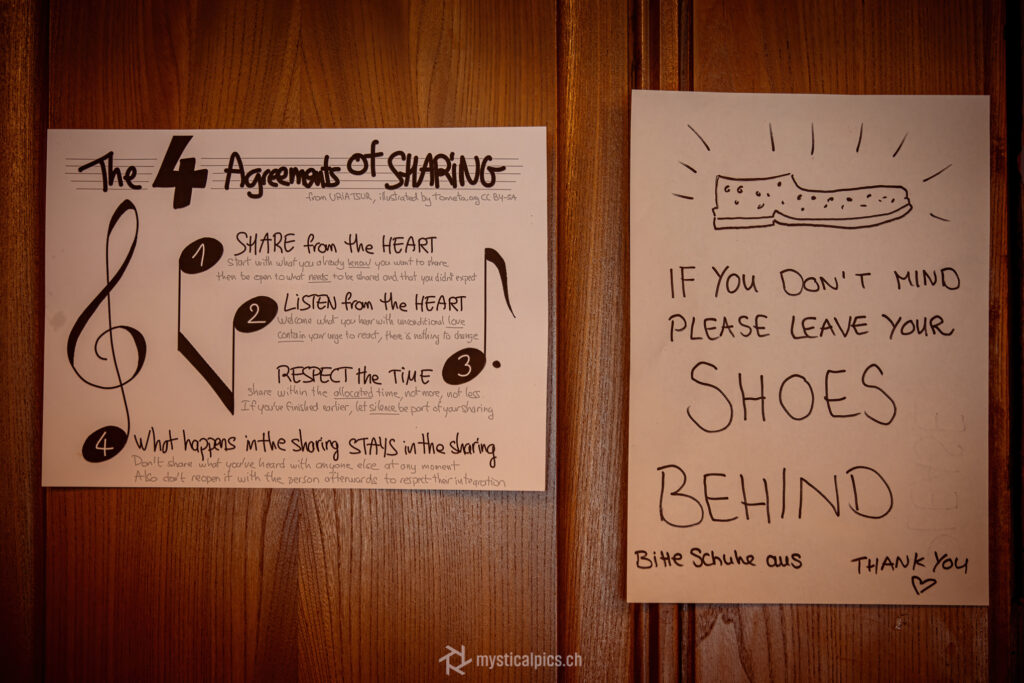 The 4 Agreements of SHARING
from URIA TSUR, illustrated by Tanneta.org CC BY-SA
1
SHARE from the HEART
Start with what you already know you want to share
then be open to what needs to be shared and that you didn't expect
2
LISTEN from the HEART
Welcome what you hear with unconditional love
contain your urge to react, there is nothing to change
RESPECT the TIME
3
share within the allocated time, not more, not less.
If you've finished earlier, let silence be part of your sharing
4
What happens in the sharing STAYS in the sharing
Don't share what you've heard with anyone else at any moment
Also don't reopen it with the person afterwards to respect their integration
IF YOU DON'T MIND
PLEASE LEAVE YOUR
SHOES
BEHIND
Bitte Schuhe aus
THANK YOU
mysticalpics.ch